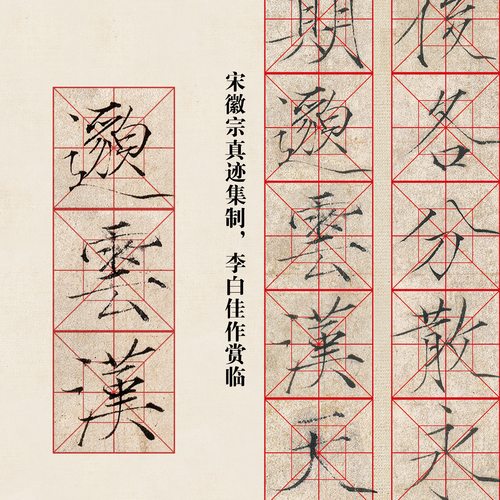 後各分散永
期邈雲漢天
宋徽宗真迹集制，李白佳作赏临
邈雲漢